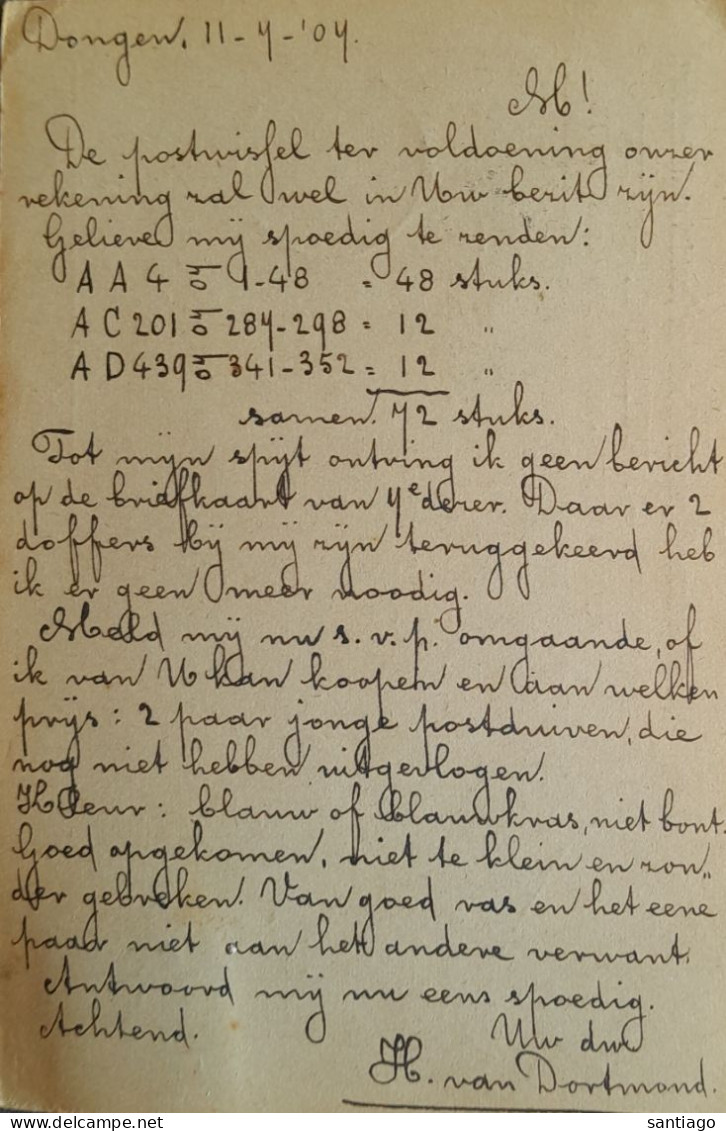 Dongen, 11-7-'07.
M!
De postwissel ter voldoening onzer
rekening zal wel in Uw bezit zijn.
Gelieve mij spoedig te zenden:
A A 4 1-48 = 48 stuks.
A C 201 287-298 = 12 "
A D 439 341-352 = 12 "
samen. 72 stuks.
Tot mijn spijt ontving ik geen bericht
op de briefkaart van 7e dezer. Daar er 2
doffers bij mij zijn teruggekeerd heb
ik er geen meer noodig.
Meld mij nu s.v.p. omgaande, of
ik van U kan koopen en aan welken
prijs: 2 paar jonge postduiven, die
nog niet hebben uitgevlogen.
Kleur: blauw of blauwkras, niet bont.
Goed opgekomen, niet te klein en zon„
der gebreken. Van goed ras en het eene
paar niet aan het andere verwant.
Antwoord mij nu eens spoedig.
Achtend. Uw dw
H. van Dortmond.
delcampe.net
santiago